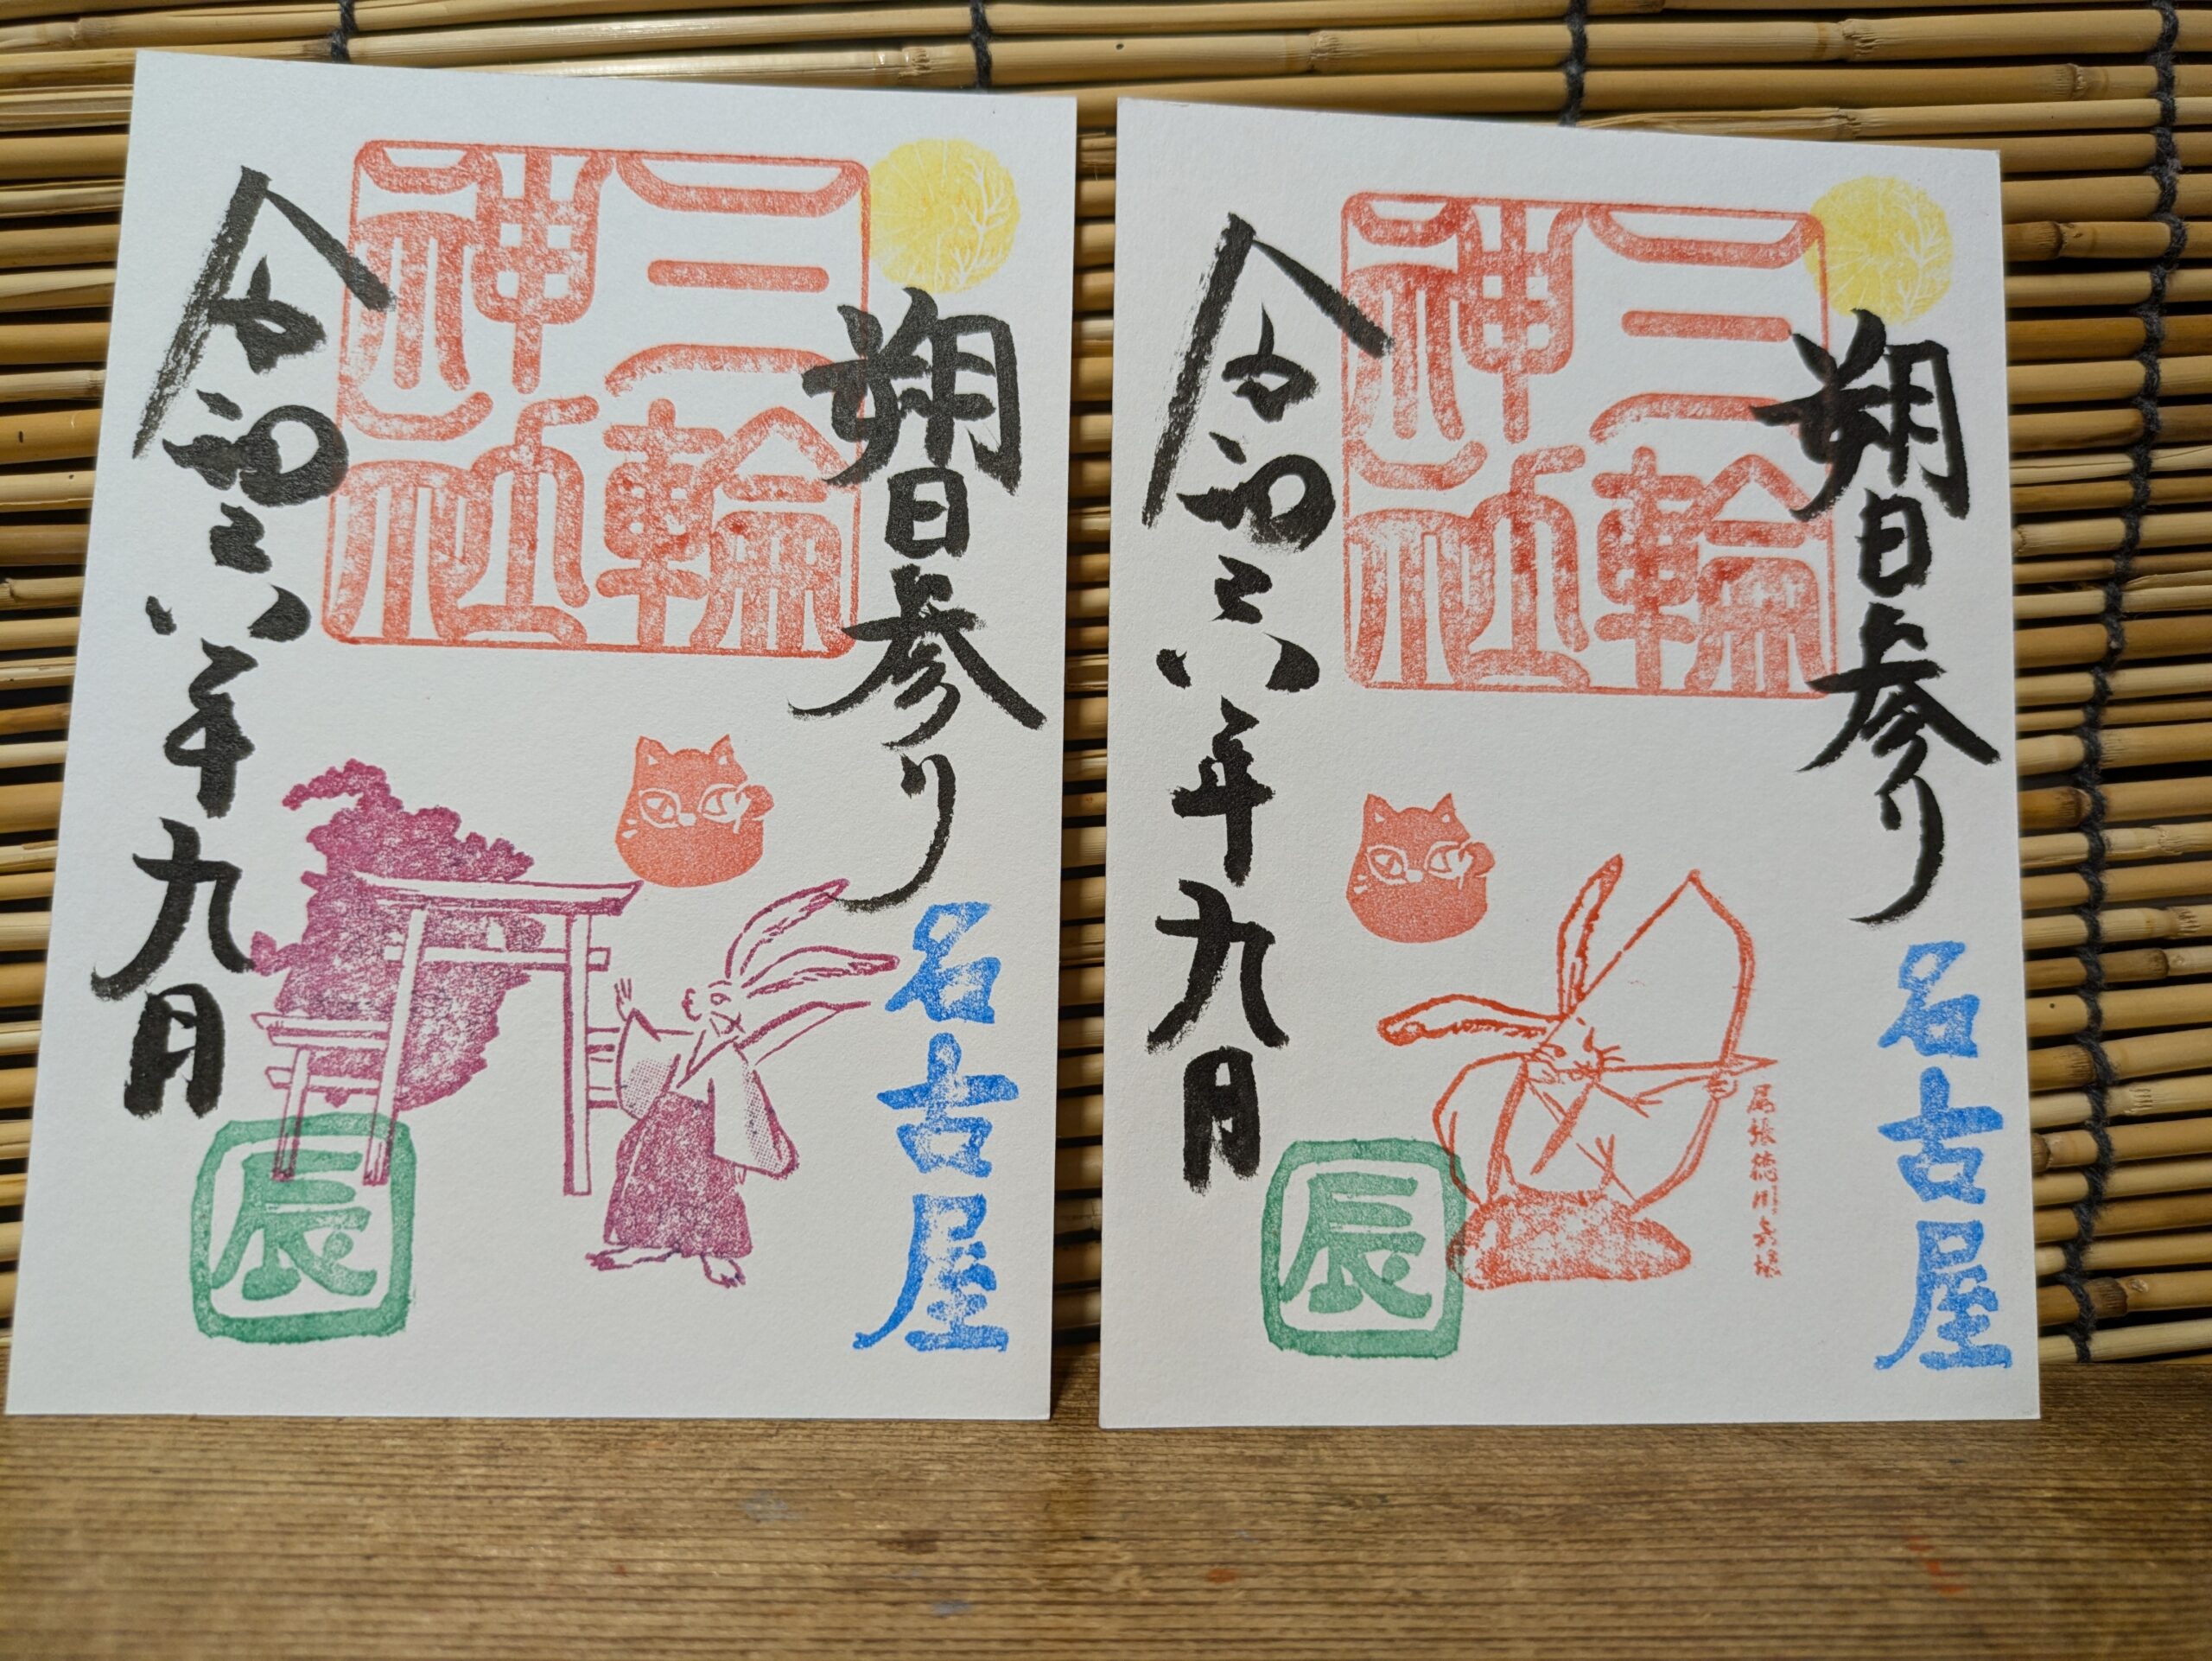 朔日参り
名古屋
三輪神社
令和六年九月
辰
朔日参り
名古屋
三輪神社
令和六年九月
尾張徳川
辰